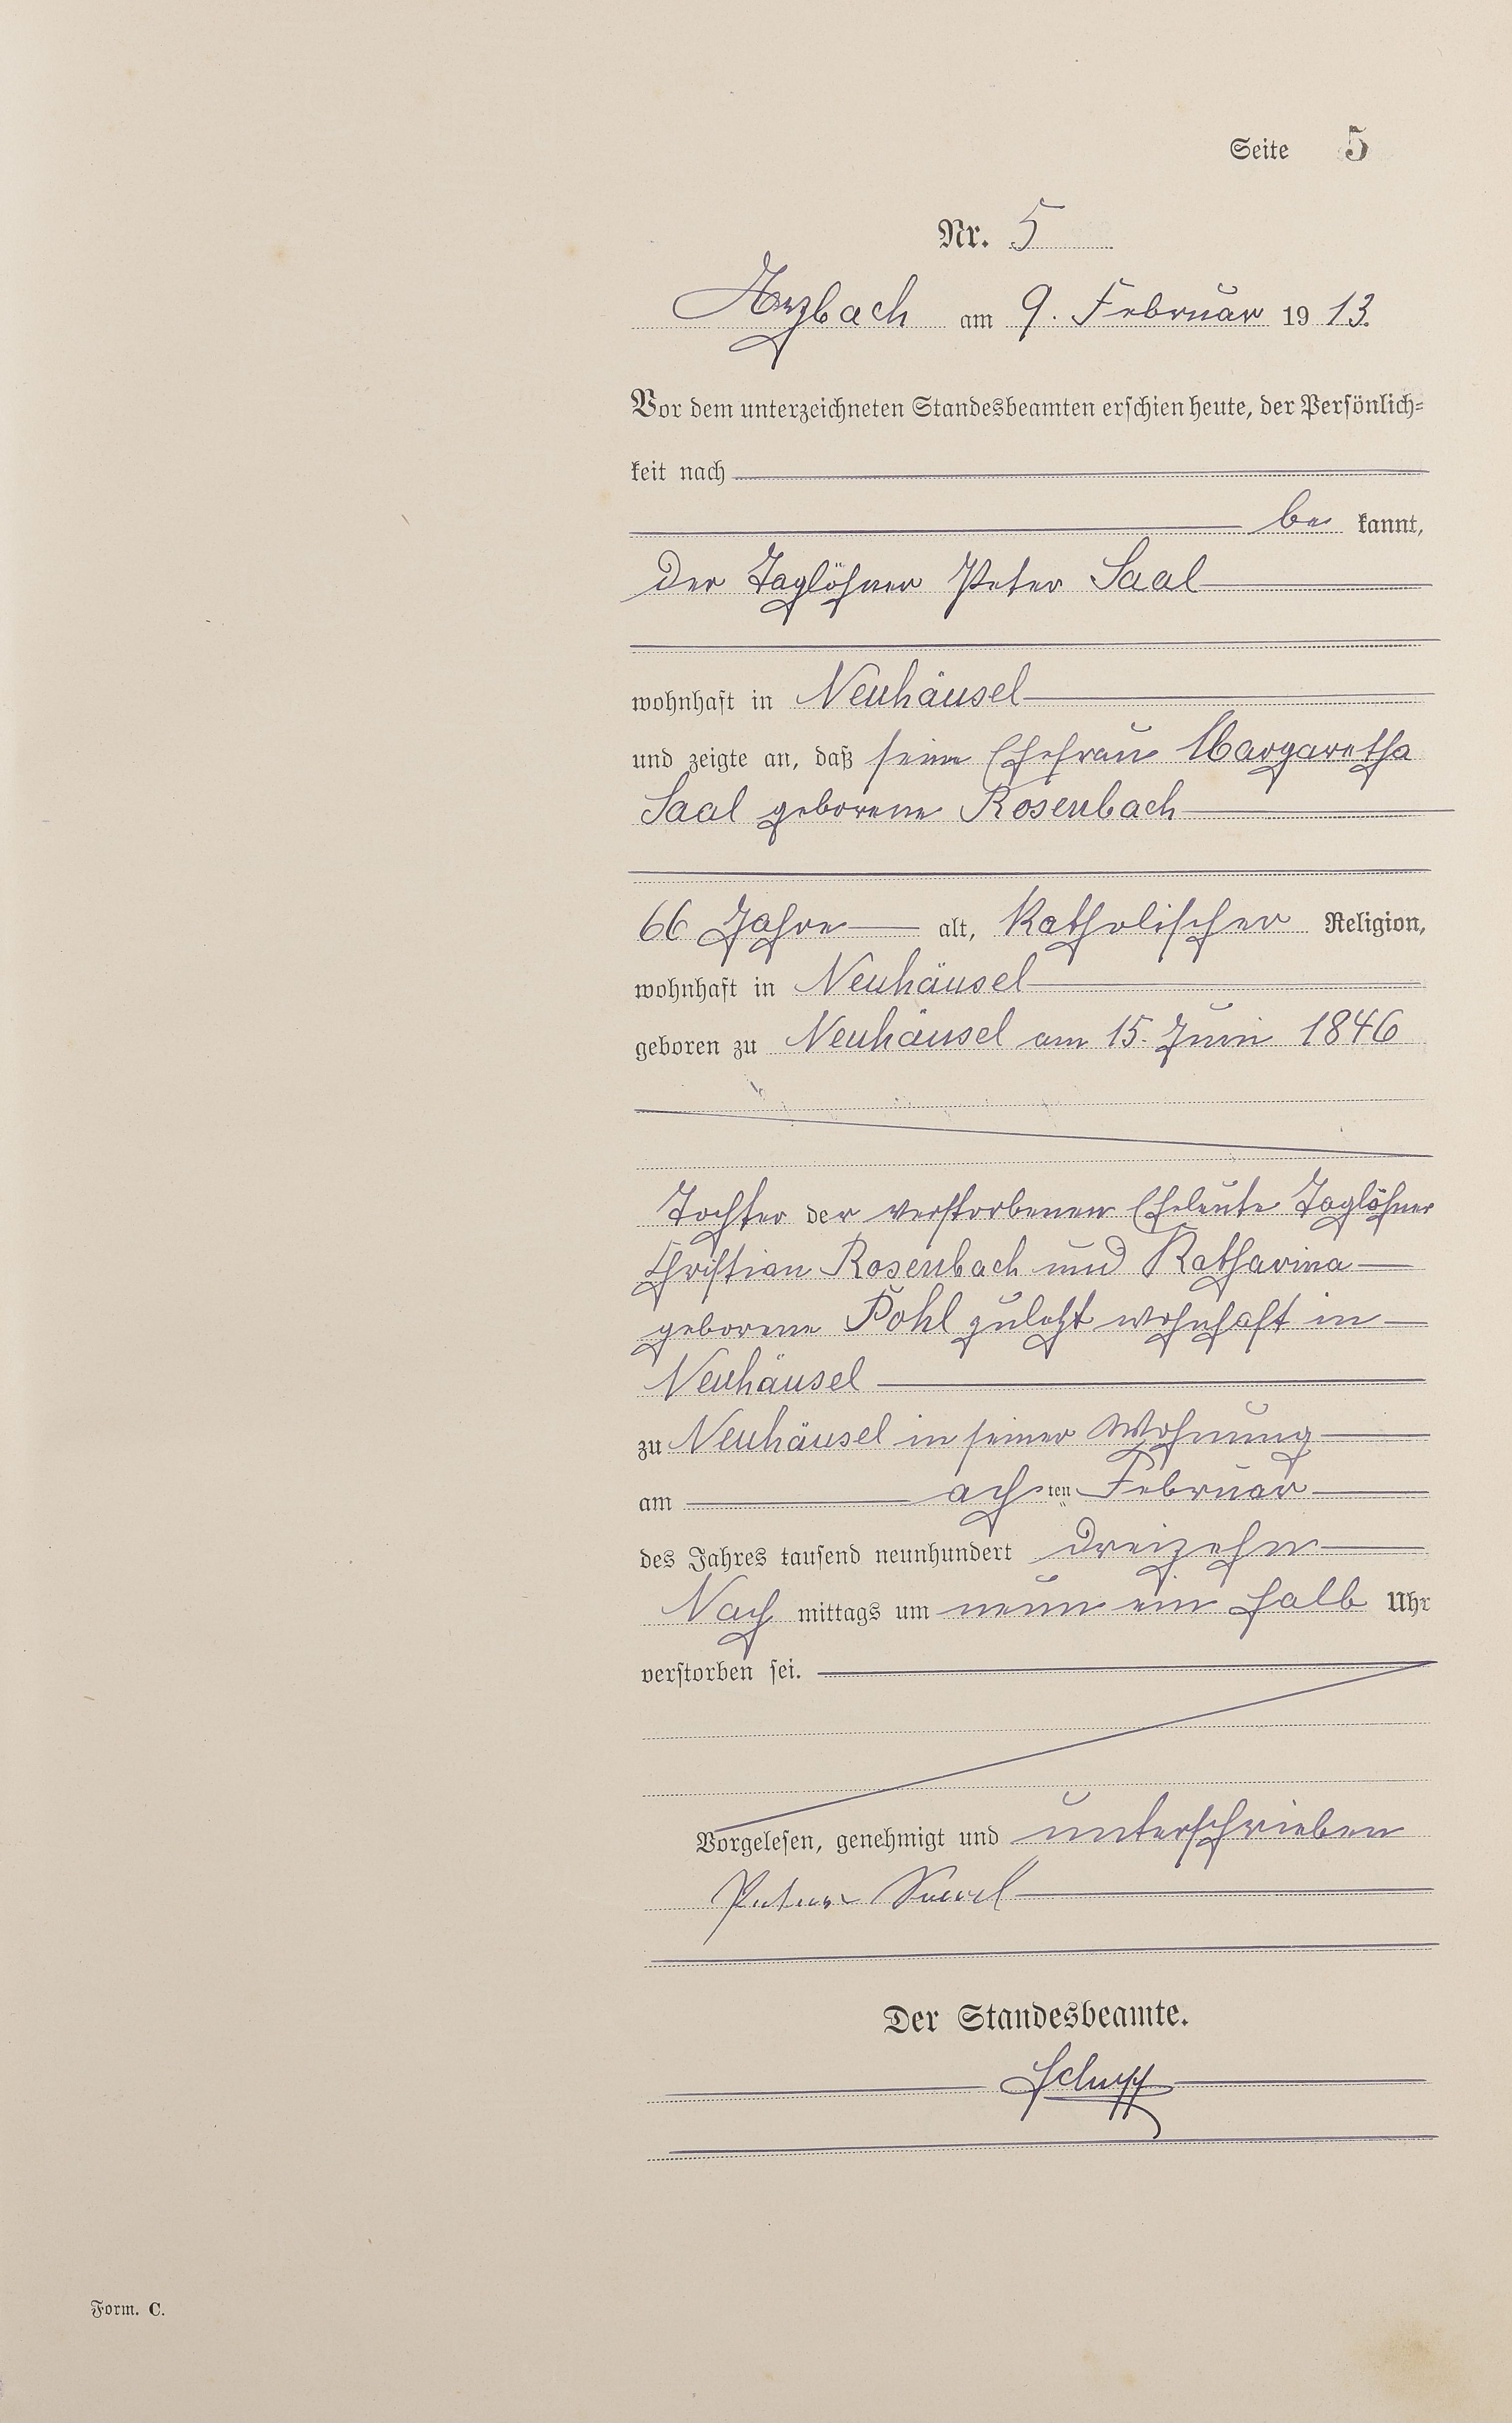 Seite 5
Nr. 5
Arzbach am 9. Februar 1913.
Vor dem unterzeichneten Standesbeamten erschien heute, der Persönlich-
keit nach
be kannt,
der Taglöhner Peter Saal
wohnhaft in Neuhäusel
und zeigte an, daß seine Ehefrau Margaretha
Saal geborene Rosenbach
66 Jahre alt, Katholischer Religion,
wohnhaft in Neuhäusel
geboren zu Neuhäusel am 15. Juni 1846
Tochter der verstorbenen Eheleute Taglöhner
Christian Rosenbach und Katharina
geborene Pohl zuletzt wohnhaft in
Neuhäusel
zu Neuhäusel in seiner Wohnung
am achten Februar
des Jahres tausend neunhundert dreizehn
Nach mittags um neun ein halb Uhr
verstorben sei.
Vorgelesen, genehmigt und unterschrieben
Peter Saal
Der Standesbeamte.
Schupp
Form. C.